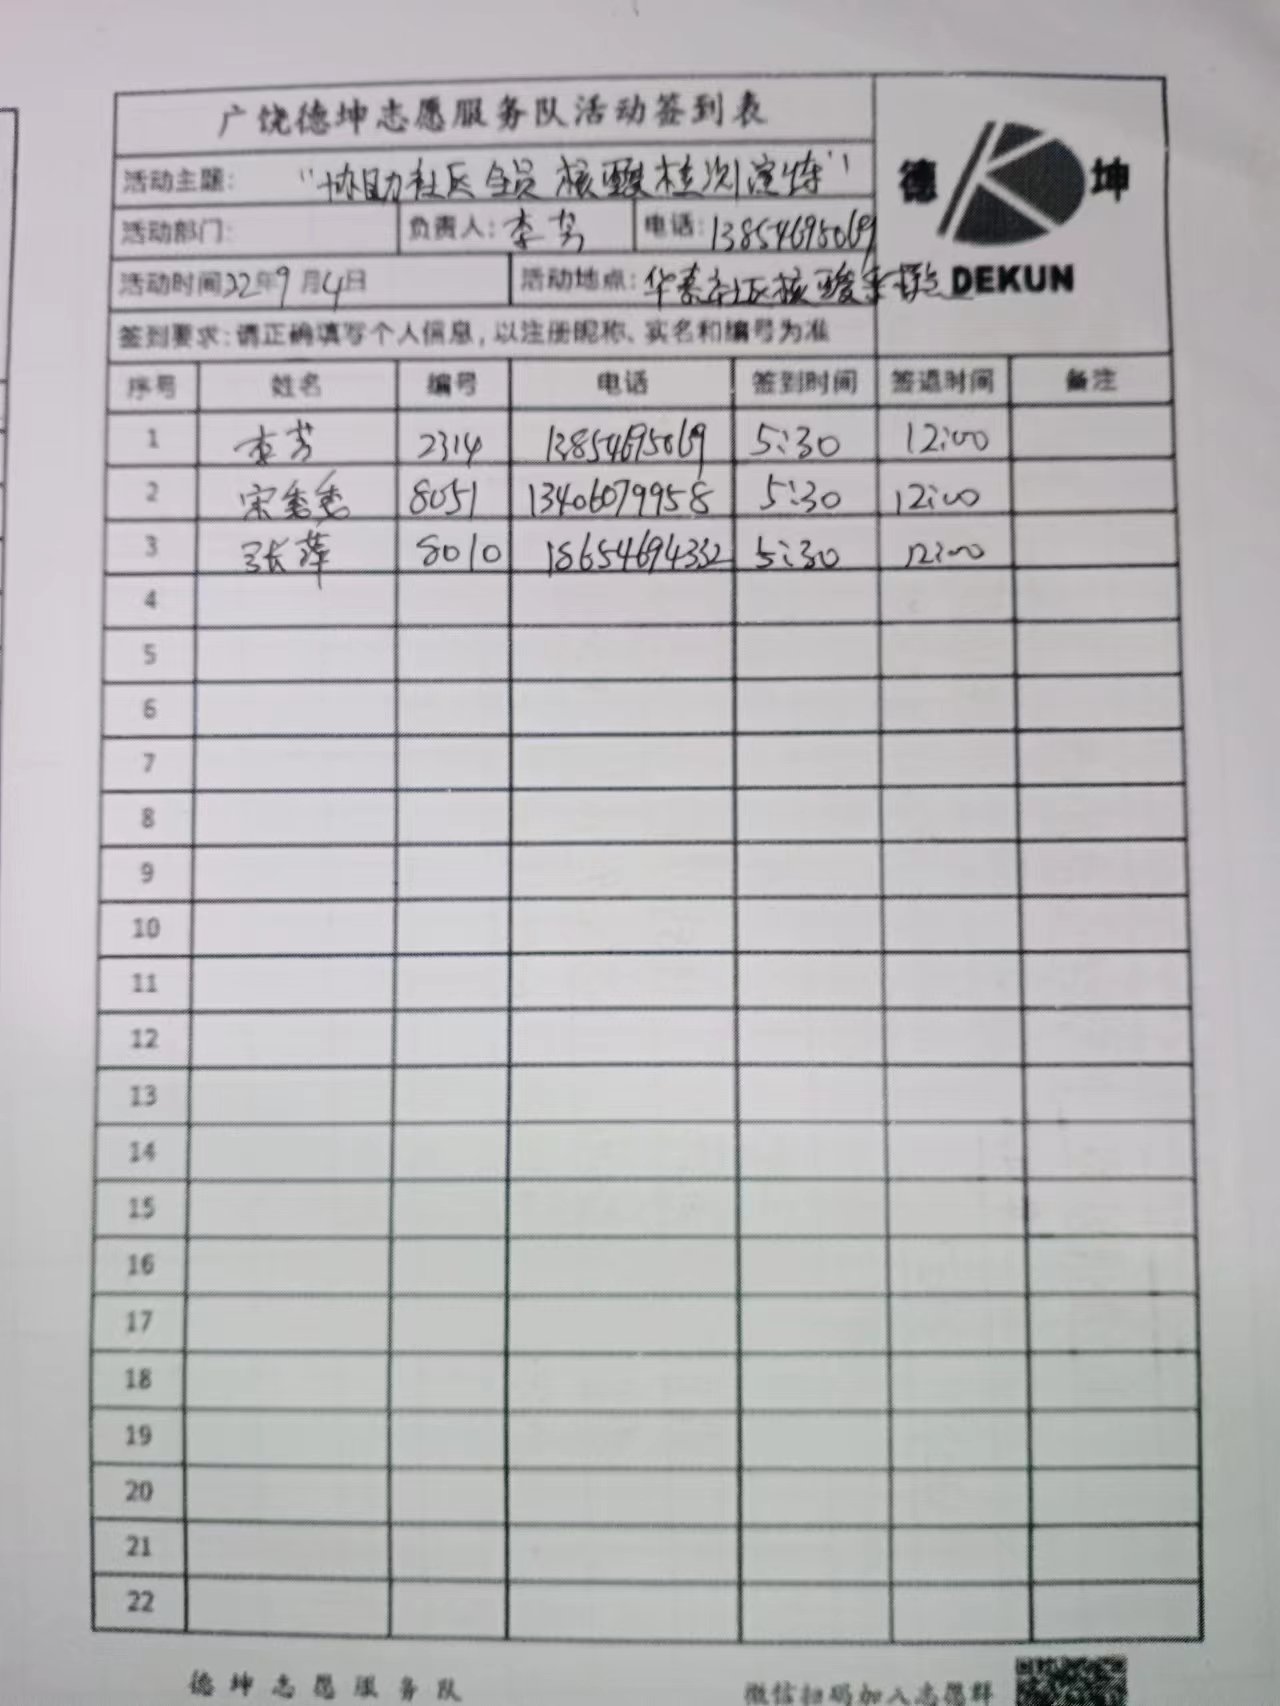 广饶德坤志愿服务队活动签到表
德 坤
DEKUN
活动主题: "协助社区全员核酸检测演练"
活动部门: 负责人: 李芳 电话: 13854695069
活动时间22年9月4日 活动地点: 华泰社区核酸采样点
签到要求: 请正确填写个人信息, 以注册昵称、实名和编号为准
序号 姓名 编号 电话 签到时间 签退时间 备注
1 李芳 2314 13854695069 5:30 12:00
2 宋秀秀 8051 13406079958 5:30 12:00
3 张萍 8010 18654694332 5:30 12:00
4
5
6
7
8
9
10
11
12
13
14
15
16
17
18
19
20
21
22
德坤志愿服务队 微信扫码加入志愿群